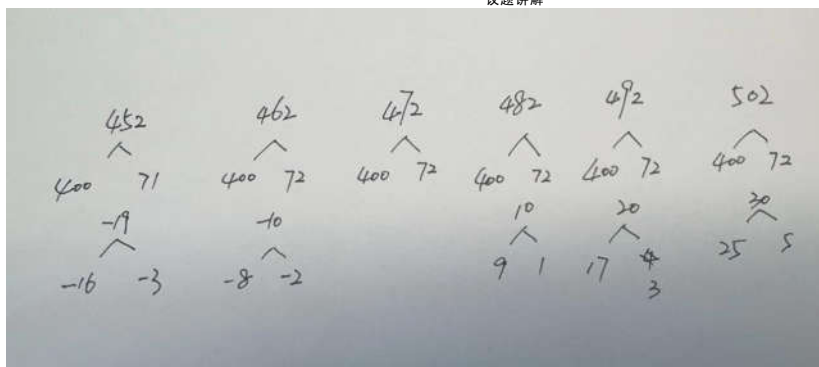 议题讲解
452 462 472 482 492 502
400 71 400 72 400 72 400 72 400 72 400 72
-19 -10 10 20 30
-16 -3 -8 -2 9 1 17 4 25 5
3